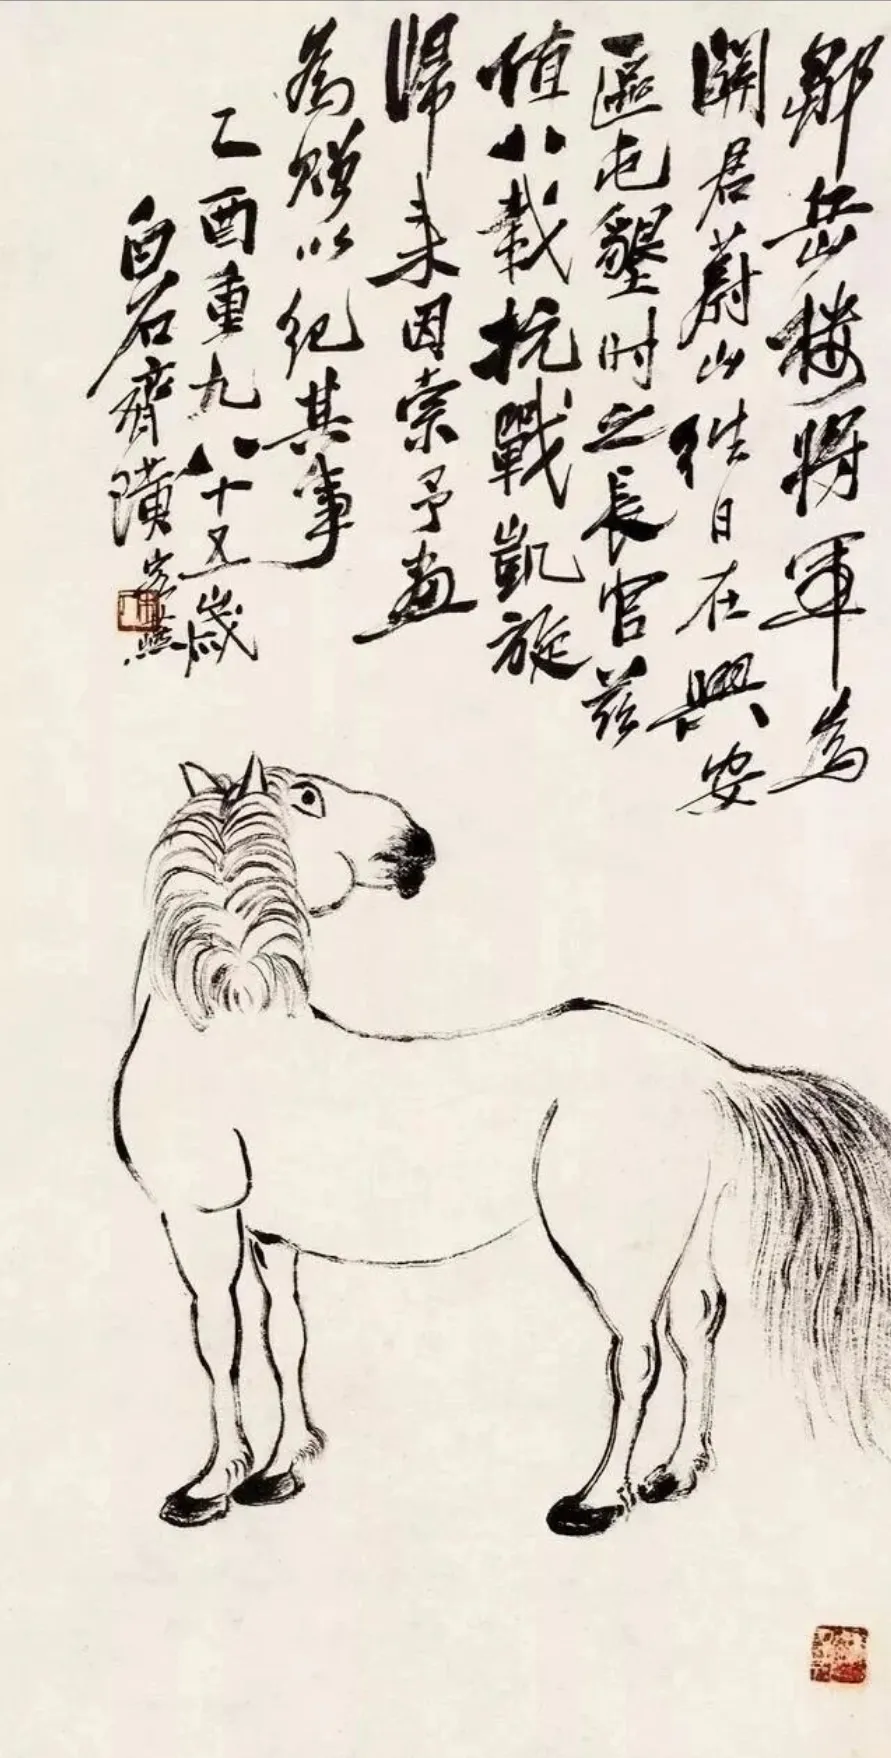 鄒岳樓將軍為
關君蔚山往日在興安
區屯墾时之長官茲
值八載抗戰凱旋
歸来因索予畫
為贈以紀其事
乙酉重九八十五歲
白石齊璜